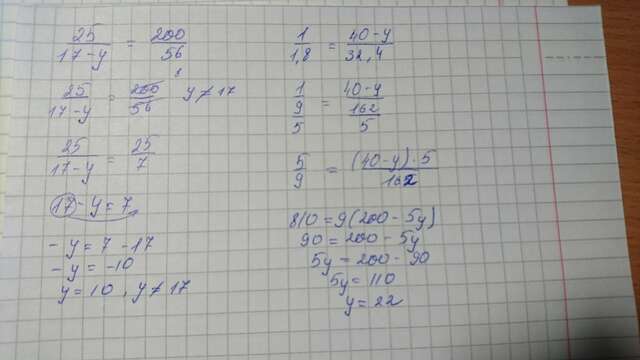 25/(17-y) = 200/56
25/(17-y) = 200/56 y≠17
25/(17-y) = 25/7
17-y=7
-y=7-17
-y=-10
y=10, y≠17
1/1,8 = (40-y)/32,4
1/(9/5) = (40-y)/(162/5)
5/9 = ((40-y)·5)/162
810=9(200-5y)
90=200-5y
5y=200-90
5y=110
y=22